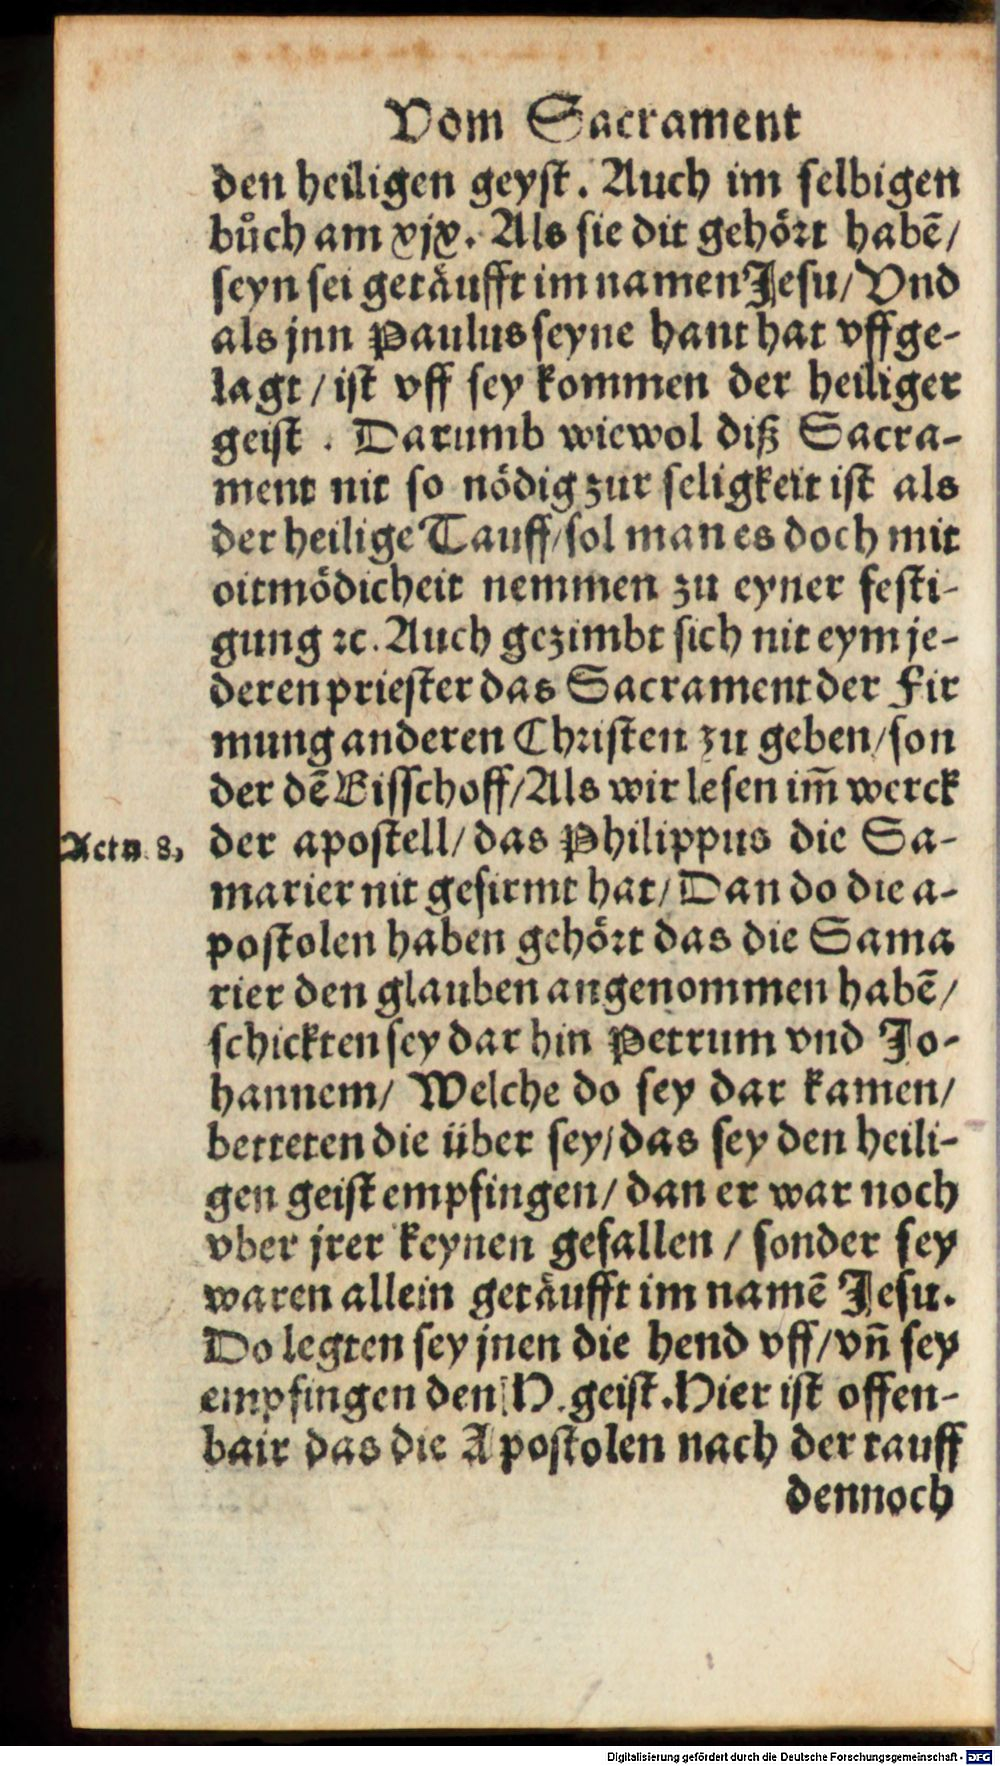 Vom Sacrament
den heiligen geyst. Auch im selbigen
bůch am xjx. Als sie dit gehoͤrt habē/
seyn sei getaͤufft im namen Jesu/ Vnd
als jnn Paulus seyne hant hat vffge-
lagt / ist vff sey kommen der heiliger
geist . Darumb wiewol diß Sacra-
ment nit so noͤdig zur seligkeit ist als
der heilige Tauff/ sol man es doch mit
oitmoͤdicheit nemmen zu eyner festi-
gung ꝛc. Auch gezimbt sich nit eym je-
deren priester das Sacrament der Fir
mung anderen Christen zu geben/ son
der dē Bisschoff/ Als wir lesen im̄ werck
Actū. 8, der apostell/ das Philippus die Sa-
marier nit gefirmt hat/ Dan do die a-
postolen haben gehoͤrt das die Sama
rier den glauben angenommen habē/
schickten sey dar hin Petrum vnd Jo-
hannem/ Welche do sey dar kamen/
betteten die über sey/ das sey den heili-
gen geist empfingen/ dan er war noch
vber jrer keynen gefallen / sonder sey
waren allein getaͤufft im namē Jesu.
Do legten sey jnen die hend vff/ vn̄ sey
empfingen den H. geist. Hier ist offen-
bair das die Apostolen nach der tauff
dennoch
Digitalisierung gefördert durch die Deutsche Forschungsgemeinschaft - DFG